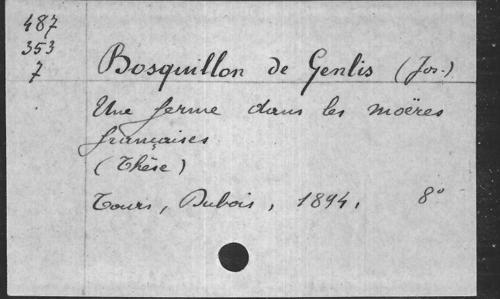 487
353
7
Bosquillon de Genlis (Jos.)
Une ferme dans les moëres
françaises
(Thèse)
Tours, Dubois, 1894. 8°